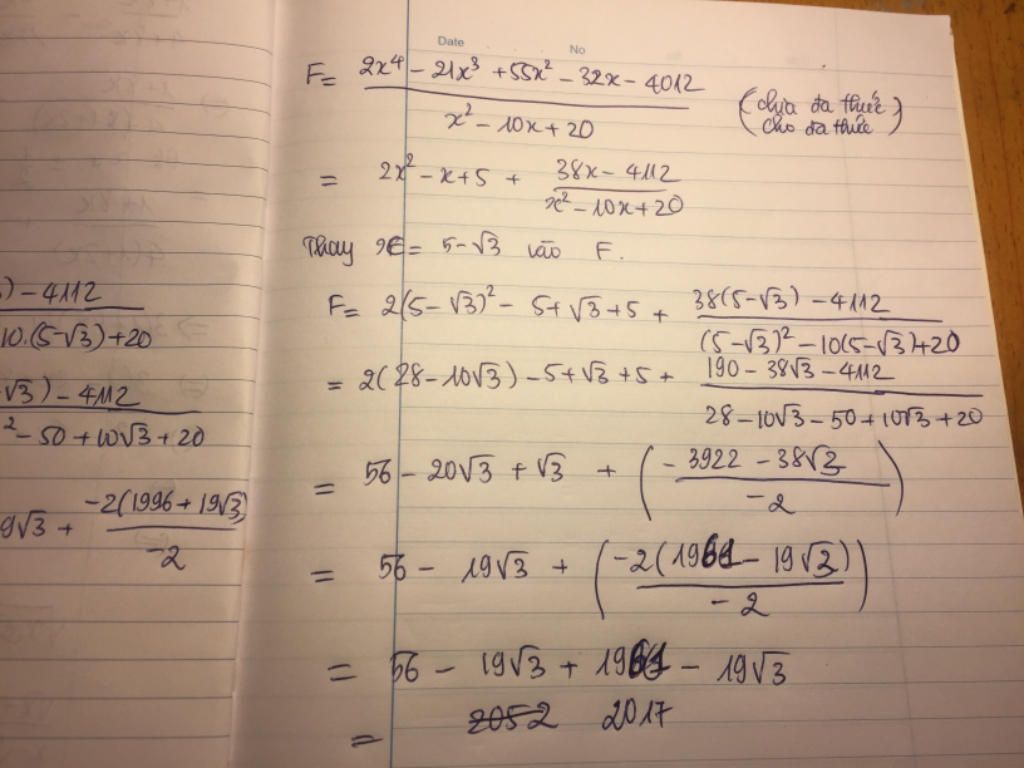 Date No
F = (2x⁴ - 21x³ + 55x² - 32x - 4012) / (x² - 10x + 20) (chia đa thức cho đa thức)
= 2x² - x + 5 + (38x - 4112) / (x² - 10x + 20)
Thay x = 5 - √3 vào F.
F = 2(5 - √3)² - 5 + √3 + 5 + (38(5 - √3) - 4112) / ((5 - √3)² - 10(5 - √3) + 20)
= 2(28 - 10√3) - 5 + √3 + 5 + (190 - 38√3 - 4112) / (28 - 10√3 - 50 + 10√3 + 20)
= 56 - 20√3 + √3 + ((-3922 - 38√3) / (-2))
= 56 - 19√3 + ((-2(1961 - 19√3)) / (-2))
= 56 - 19√3 + 1961 - 19√3
= 2052 2017
) - 4112
10.(5 - √3) + 20
√3) - 4112
² - 50 + 10√3 + 20
9√3 + (-2(1996 + 19√3)) / (-2)